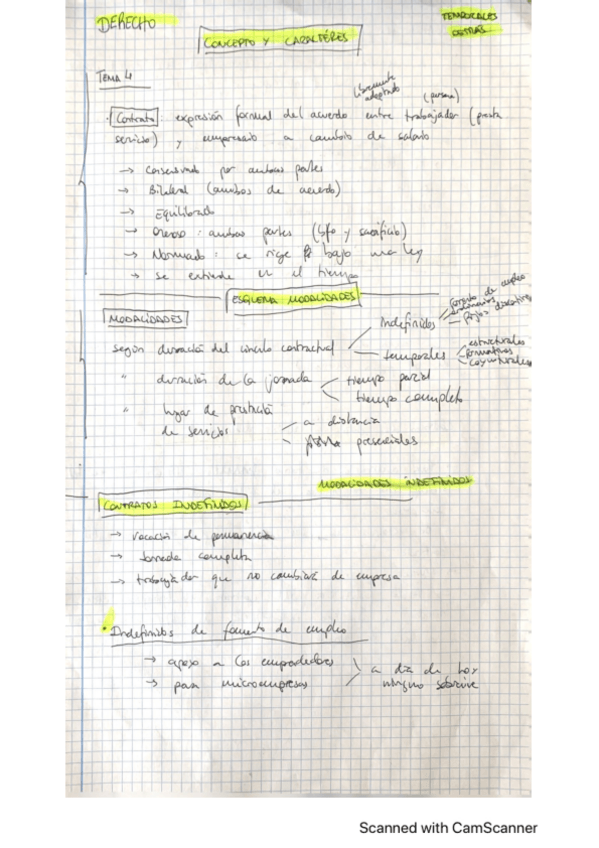 DERECHO
TEMPORALES
DETRÁS
CONCEPTO Y CARACTÉRES
TEMA 4
libremente
adoptado
(persona)
Contrato: expresión formal del acuerdo entre trabajador (presta
servicio) y empresario a cambio de salario
→ Consensuado por ambas partes
→ Bilateral (ambos de acuerdo)
→ Equilibrado
→ Oneroso: ambas partes (bfo y sacrificio)
→ Normado: se rige bajo una ley
→ se extiende en el tiempo
ESQUEMA MODALIDADES
MODALIDADES
fomento de empleo
ordinarios
fijos discontinuos
Indefinidos
según duración del vínculo contractual
temporales
estructurales
formativos
coyunturales
" duración de la jornada
tiempo parcial
tiempo completo
" lugar de prestación
de servicios
a distancia
presenciales
MODALIDADES INDEFINIDOS
CONTRATOS INDEFINIDOS
→ vocación de permanencia
→ Jornada completa
→ trabajador que no cambiará de empresa
• Indefinidos de fomento de empleo
→ apoyo a los emprendedores
→ para microempresas
a día de hoy
ninguno sobrevive
Scanned with CamScanner